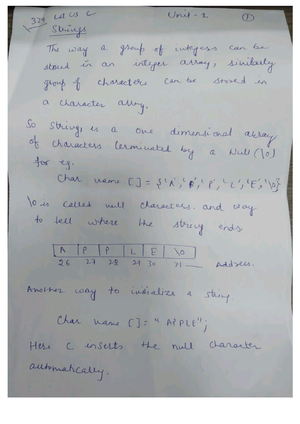 329 Let Us C Unit-1 1
Strings
The way a group of integers can be
stored in an integer array, similarly
group of characters can be stored in
a character array.
So Strings is a one dimensional array
of characters terminated by a Null (\0)
for e.g.
Char name [] = {'A', 'P', 'P', 'L', 'E', '\0'}
\0 is called null character. and way
to tell where the string ends
A P P L E \0
26 27 28 29 30 31 address.
Another way to initialize a string
Char name [] = "APPLE";
Here C inserts the null character
automatically.